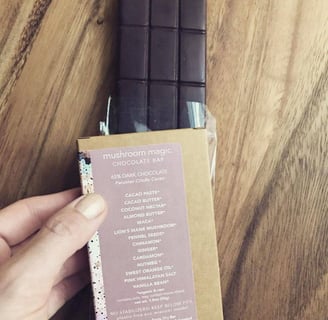 mushroom magic
CHOCOLATE BAR
65% DARK CHOCOLATE
CACAO PASTE*
CACAO BUTTER*
COCONUT NECTAR*
ALMOND BUTTER*
MACA*
LION'S MANE MUSHROOM*
FENNEL SEEDS*
CINNAMON*
GINGER*
CARDAMOM*
NUTMEG*
SWEET ORANGE OIL*
PINK HIMALAYAN SALT
VANILLA BEAN*